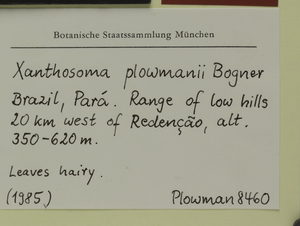 Botanische Staatssammlung München
Xanthosoma plowmanii Bogner
Brazil, Pará. Range of low hills
20 km west of Redenção, alt.
350-620 m.
Leaves hairy.
(1985) Plowman 8460